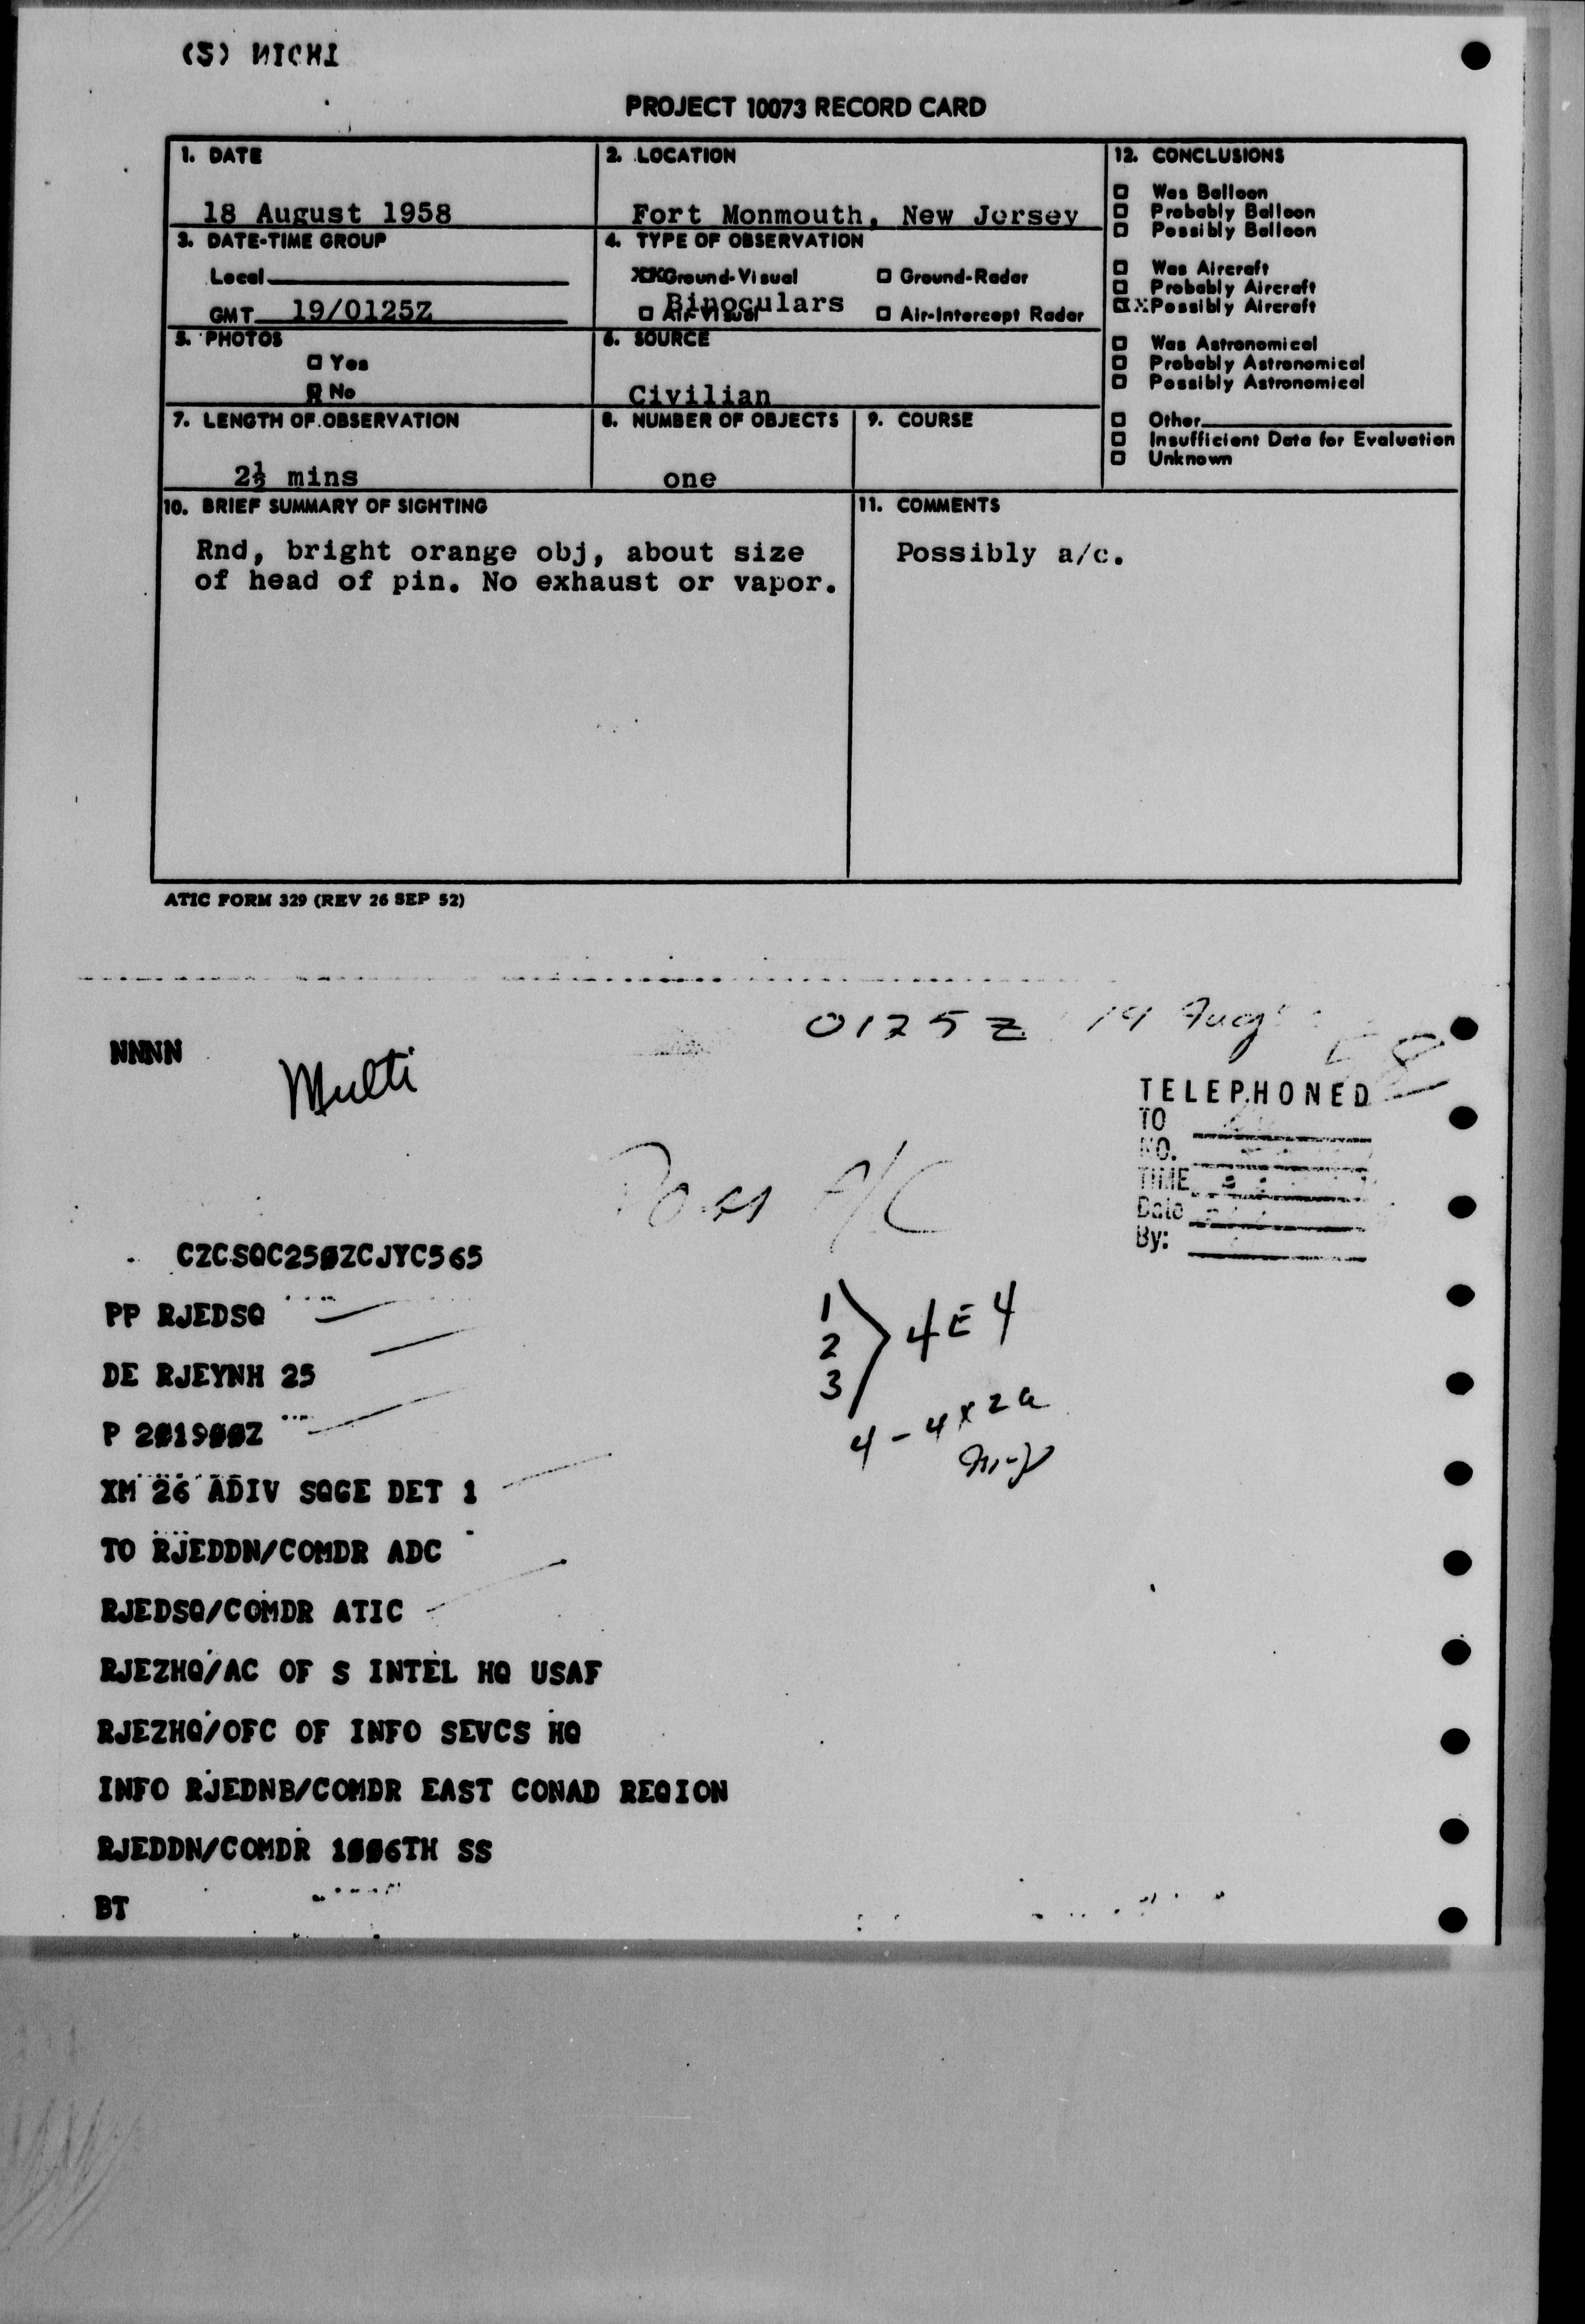 (S) NICHI
PROJECT 10073 RECORD CARD
1. DATE
18 August 1958
2. LOCATION
Fort Monmouth, New Jersey
12. CONCLUSIONS
Was Balloon
Probably Balloon
Possibly Balloon
Was Aircraft
Probably Aircraft
XX Possibly Aircraft
Was Astronomical
Probably Astronomical
Possibly Astronomical
Other
Insufficient Data for Evaluation
Unknown
3. DATE-TIME GROUP
Local
GMT 19/0125Z
4. TYPE OF OBSERVATION
XX Ground-Visual
Ground-Radar
Binoculars
Air-Visual
Air-Intercept Radar
5. PHOTOS
Yes
No
6. SOURCE
Civilian
7. LENGTH OF OBSERVATION
2½ mins
8. NUMBER OF OBJECTS
one
9. COURSE
10. BRIEF SUMMARY OF SIGHTING
Rnd, bright orange obj, about size
of head of pin. No exhaust or vapor.
11. COMMENTS
Possibly a/c.
ATIC FORM 329 (REV 26 SEP 52)
0125Z 19 Aug 58
NNNN
Multi
TELEPHONED
TO
NO.
TIME
Date
By:
Poss A/C
CZCSQC250ZCJYC565
PP RJEDSQ
DE RJEYNH 25
P 201900Z
XM 26 ADIV SQGE DET 1
TO RJEDDN/COMDR ADC
RJEDSQ/COMDR ATIC
RJEZHQ/AC OF S INTEL HQ USAF
RJEZHQ/OFC OF INFO SEVCS HQ
INFO RJEDNB/COMDR EAST CONAD REGION
RJEDDN/COMDR 1006TH SS
BT
1
2 4E4
3
4 - 4x2a